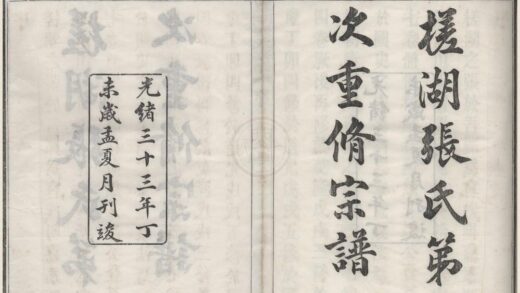 槎湖張氏弟
次重脩宗譜
光緒三十三年丁
未歲孟夏月刊竣